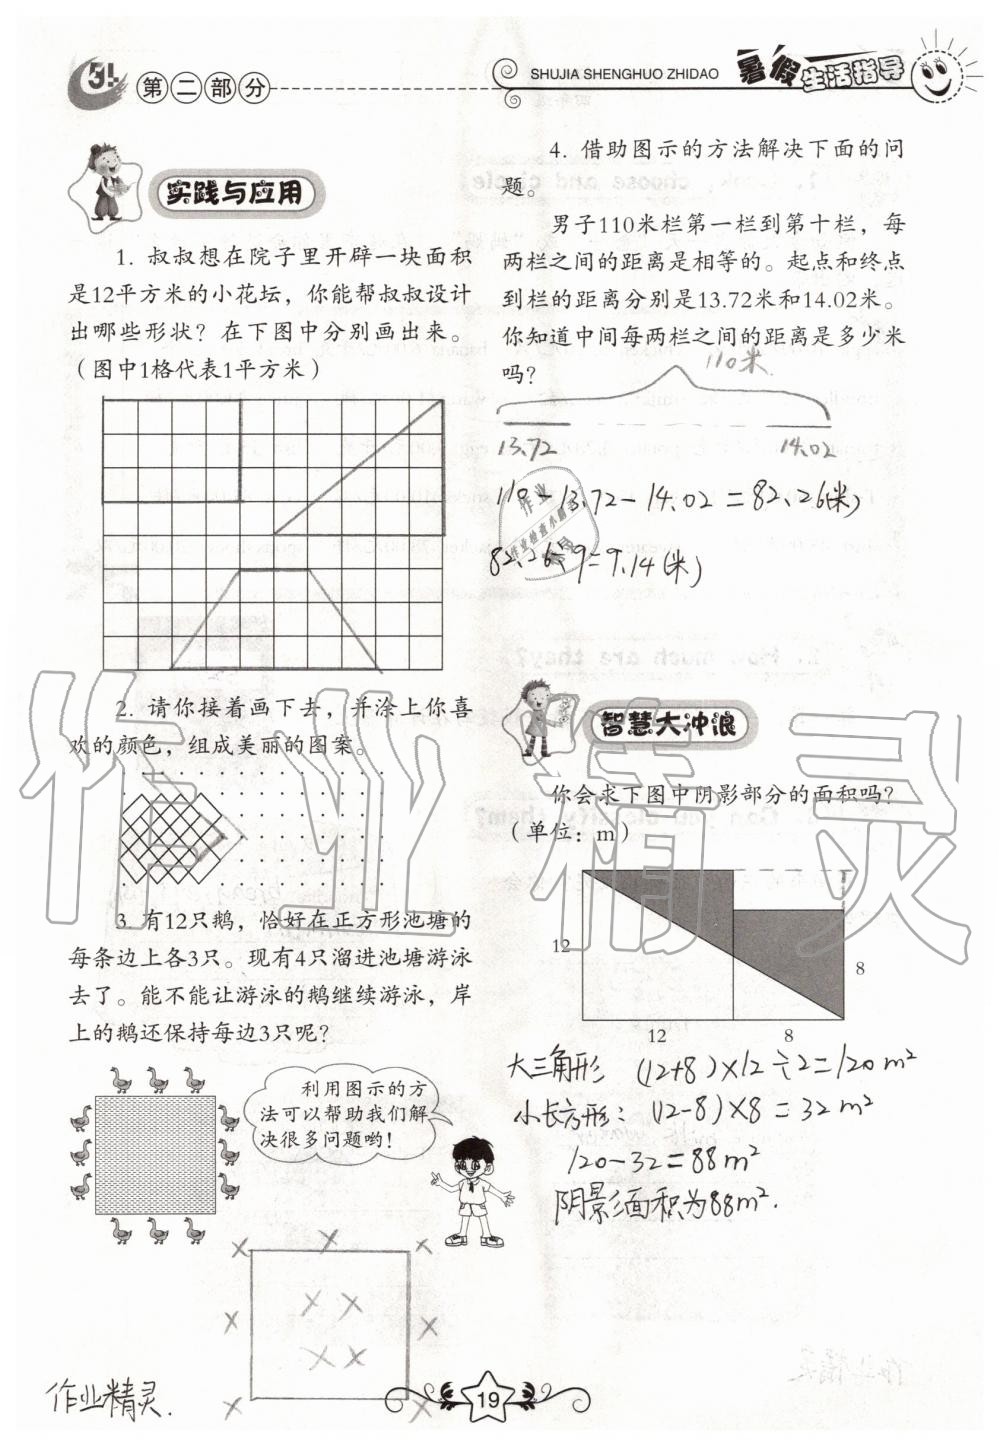 第二部分
SHUJIA SHENGHUO ZHIDAO
暑假生活指导
实践与应用
1. 叔叔想在院子里开辟一块面积
是12平方米的小花坛，你能帮叔叔设计
出哪些形状？在下图中分别画出来。
（图中1格代表1平方米）
2. 请你接着画下去，并涂上你喜
欢的颜色，组成美丽的图案。
3. 有12只鹅，恰好在正方形池塘的
每条边上各3只。现有4只溜进池塘游泳
去了。能不能让游泳的鹅继续游泳，岸
上的鹅还保持每边3只呢？
利用图示的方
法可以帮助我们解
决很多问题哟！
作业精灵.
4. 借助图示的方法解决下面的问
题。
男子110米栏第一栏到第十栏，每
两栏之间的距离是相等的。起点和终点
到栏的距离分别是13.72米和14.02米。
你知道中间每两栏之间的距离是多少米
吗？
110米.
13.72 14.02
110-13.72-14.02=82.26(米)
82.26÷9=9.14(米)
智慧大冲浪
你会求下图中阴影部分的面积吗？
（单位：m）
12
8
12 8
大三角形 (12+8)×12÷2=120m²
小长方形：(12-8)×8=32m²
120-32=88m²
阴影面积为88m².
19
作业精灵